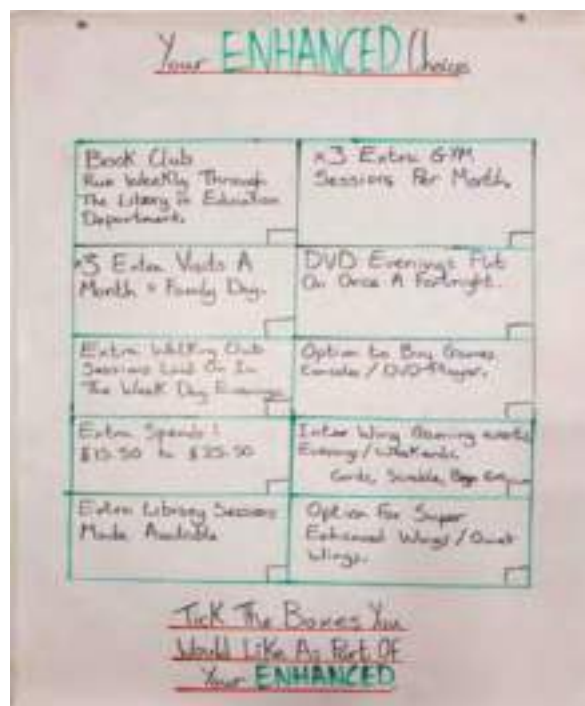 Your ENHANCED Choice
Book Club
Run Weekly Through
The Library in Education
Department.
x3 Extra GYM
Sessions Per Month.
x3 Extra Visits A
Month + Family Day.
DVD Evenings Put
On Once A Fortnight.
Extra Walking Club
Sessions Laid On In
The Week Day Evenings
Option to Buy Games
Console / DVD-Player.
Extra Spends!
$15.50 to $25.50
Inter Wing Gaming events
Evening / Weekends.
Cards, Scrabble,
Extra Library Sessions
Made Available
Option For Super
Enhanced Wings / Quiet
Wings.
Tick The Boxes You
Would Like As Part Of
Your ENHANCED